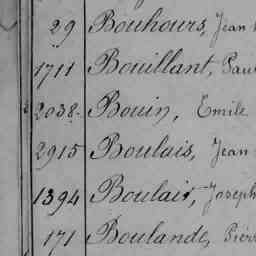 29 Bouhours, Jean
1711 Bouillant, Paul
2038. Bouin, Emile
2915 Boulais, Jean
1394 Boulait, Joseph
171 Boulande, Pierr